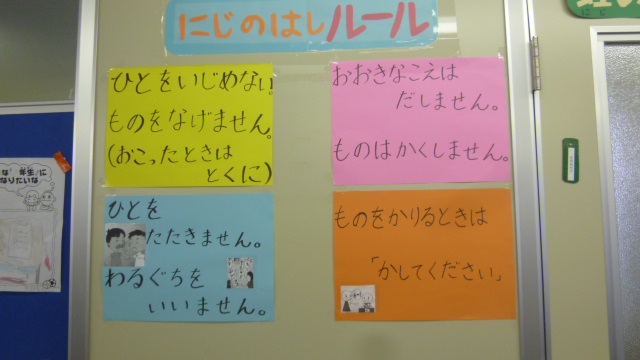 にじのはしルール
ひとをいじめない。
ものをなげません。
(おこったときは
とくに)
おおきなこえは
だしません。
ものはかくしません。
ひとを
たたきません。
わるぐちを
いいません。
ものをかりるときは
「かしてください」
年生に
なりたいな